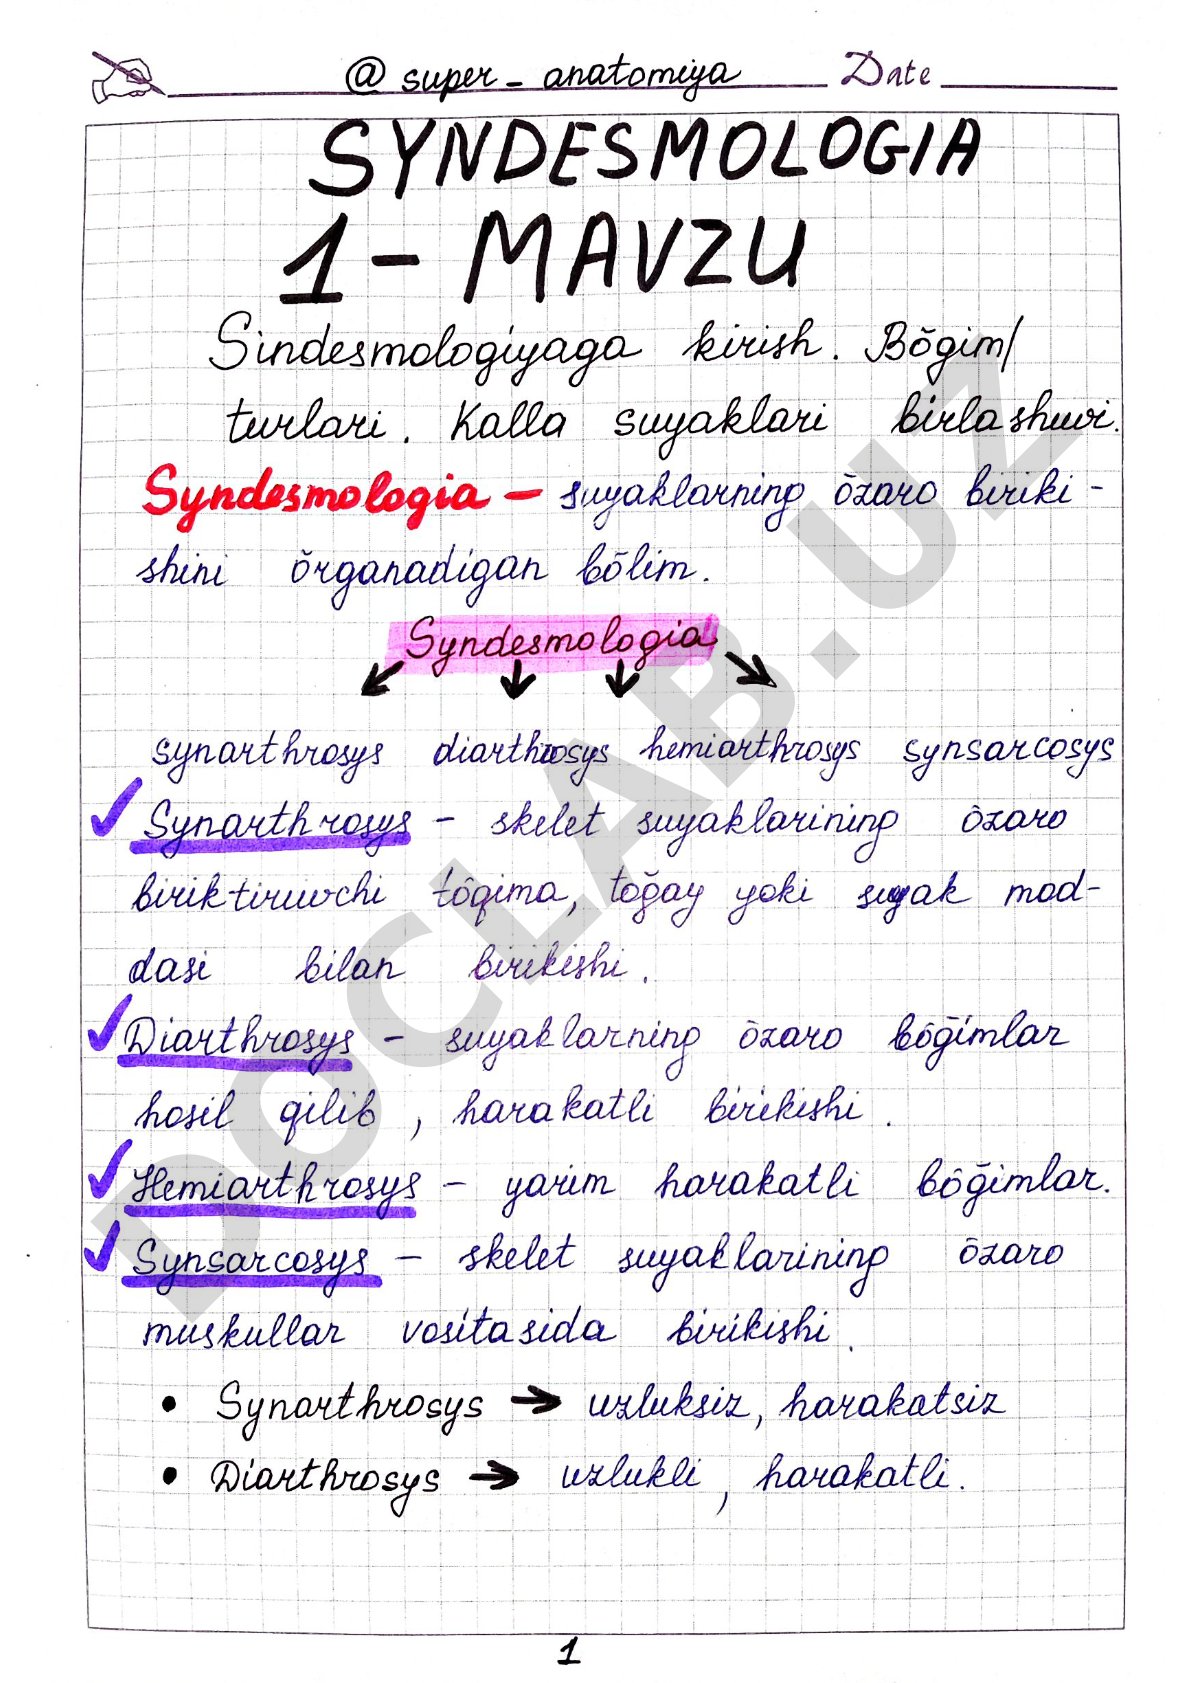 @ super_anatomiya Date
SYNDESMOLOGIA
1- MAVZU
Sindesmologiyaga kirish. Bōgim/
turlari. Kalla suyaklari birlashuvi.
Syndesmologia – suyaklarning ōzaro biriki-
shini ōrganadigan bōlim.
Syndesmologia
synarthrosys diarthrosys hemiarthrosys synsarcosys
Synarthrosys – skelet suyaklarining ōzaro
biriktiruvchi tōqima, toğay yoki suyak mod-
dasi bilan birikishi.
Diarthrosys – suyaklarning ōzaro bōğimlar
hosil qilib, harakatli birikishi.
Hemiarthrosys – yarim harakatli bōğimlar.
Synsarcosys – skelet suyaklarining ōzaro
muskullar vositasida birikishi.
• Synarthrosys → uzluksiz, harakatsiz
• Diarthrosys → uzlukli, harakatli.
1
DOCLAB.UZ